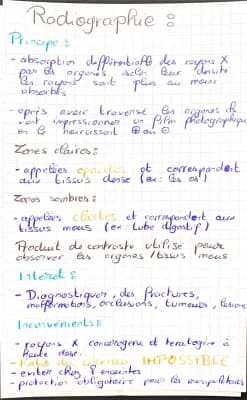 Radiographie :
Principe :
- absorption différentielle des rayons X
par les organes selon leur densité
les rayons sont plus ou moins
absorbés
- après avoir traversé les organes ils
vont impressionner un film photographique
en le noircissant ⊕ ou ⊖
Zones claires :
- appelées opacités et correspondent
aux tissus dense (ex: les os)
Zones sombres :
- appelées clartés et correspondent aux
tissus mous (ex: tube digestif)
Produit de contraste utilisé pour
observer les organes / tissus mous
Interet :
- Diagnostiquer, des fractures,
malformations, occlusions, tumeurs, lésions
Inconvenients :
- rayons X cancérogène et tératogène à
haute dose.
- du cerveau IMPOSSIBLE
- eviter chez ♀ enceintes
- protection obligatoire pour les manipulateurs